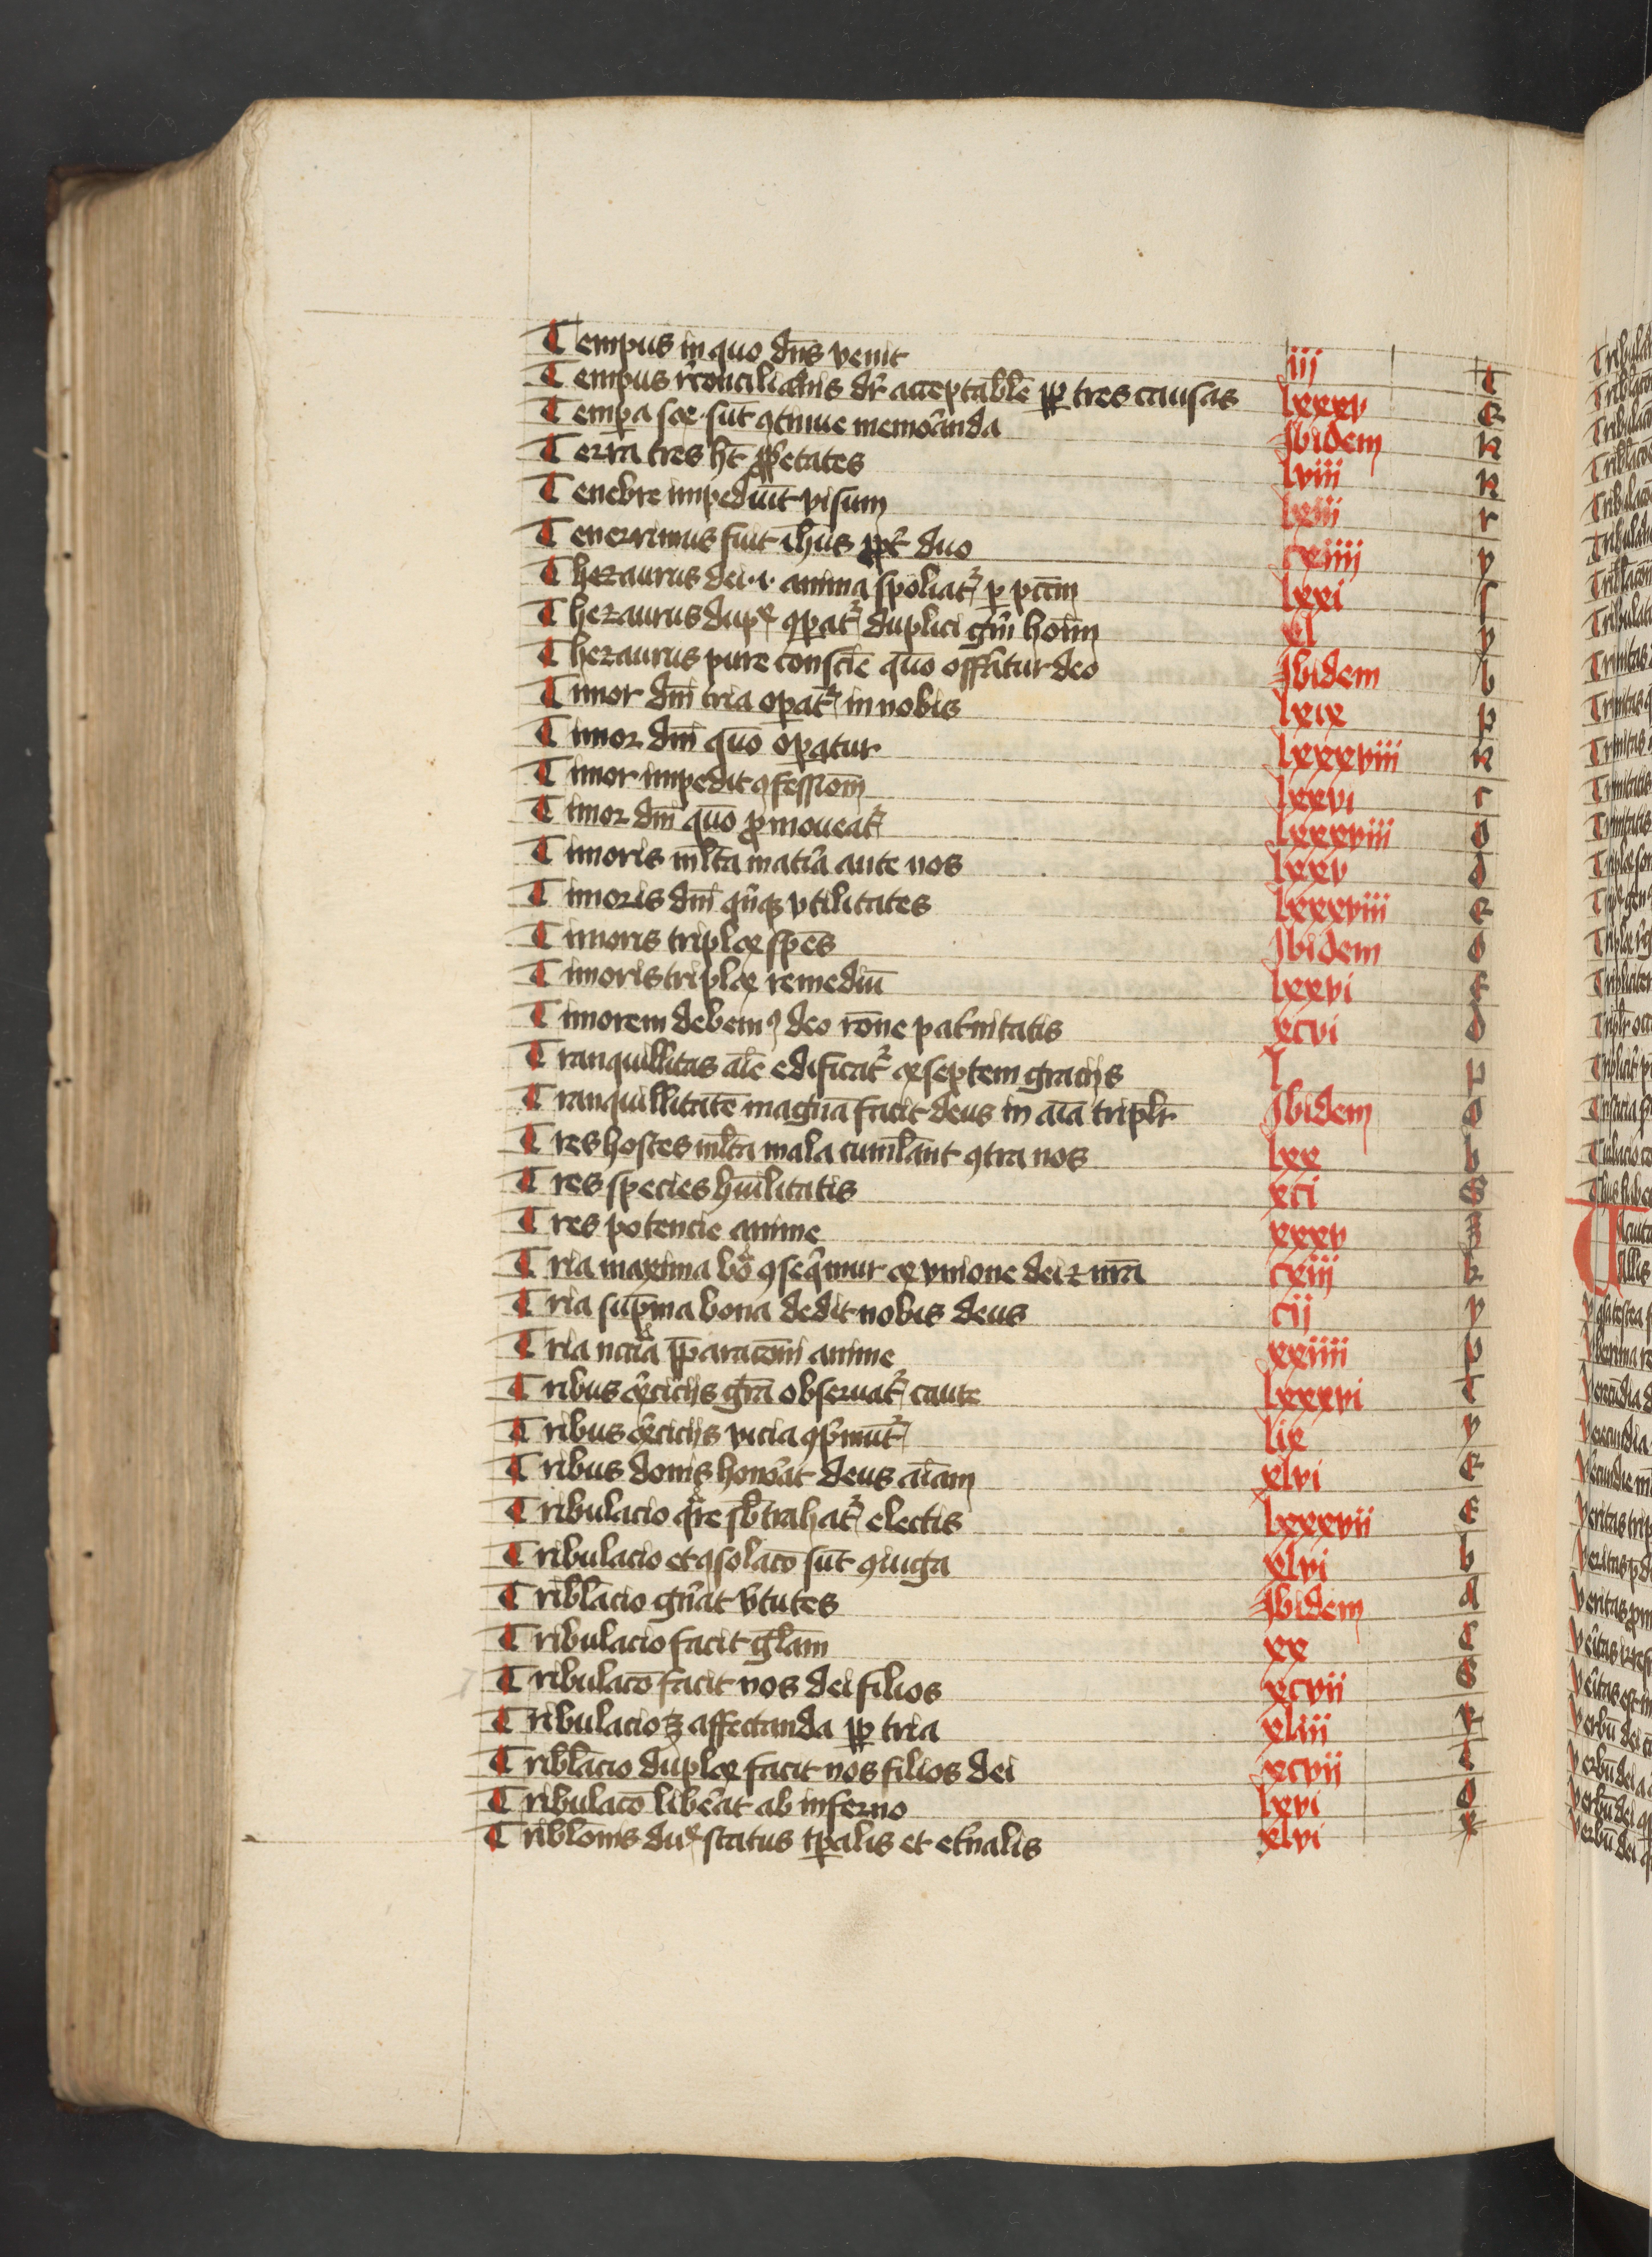 Tempus in quo dn̄s venit iij T
Tempus r̄conciliac̄onis dr̄ acceptabile ꝓpꝑ tres causas lxxxv E
Temꝑa sc̄e sūt ꝯtinue memorānda Ibidem N
Terra tres hꝫ ꝓpetates lviii N
Tenebre impediūt visum lxiii r
Tenerrimus fuit ihūs ꝓpt̄ duo cxiiij y
Thezaurus dei .i. anima spoliat̄ ꝑ pctm̄ lxxi ſ
Thezaurus dupl̄ ꝯꝑat̄ duplici gn̄i hoīm cl y
Thezaurus pure conscīe quō offertur deo Ibidem b
Timor dnī tria oꝑat̄ in nobis lxix p
Timor dnī quō oꝑatur lxxxviii N
Timor impedit ꝯfessionem lxxvi r
Timor dnī quō ꝓmoueat̄ lxxxviii O
Timoris ml̄ta matīa ante nos lxxv d
Timoris dnī qnqꝫ vtilitates lxxxviii E
Timoris triplex spēs Ibidem O
Timoris triplex remediū lxxvi E
Timorem debemꝰ deo rōne pat̄nitatis xcvi d
Tranquillitas aīe edificat̄ ex septem gracijs l F
Tranquillitatē magnā facit deus in aīa triplr̄ Ibidem O
Tres hostes ml̄ta mala cumulant ꝯtra nos lxx b
Tres species hūilitatis xci S
Tres potencie anime xxxv B
Tria maxima bōa ꝯseq̄mur ex vnione dei ⁊ nr̄a cxiij k
Tria sup̄ma bona dedit nobis deus cij y
Tria nccīa p̄paracōni anime xxiiii p
Tribus ex̄cicijs grā obseruat̄ caute lxxxvi T
Tribus ex̄cicijs vicia ꝯp̄mūt̄ lix y
Tribus donis honorāt deus aīam xlvi E
Tribulacio qr̄e sb̄trahat̄ electis lxxxvii E
Tribulacio et ꝯsolacō sūt ꝯiuga xlvi b
Tribl̄acio gn̄at v̄tutes Ibidem d
Tribulacio facit gl̄am xx C
Tribulacō facit nos dei filios xcvii S
Tribulacio affectanda ꝓpꝑ tria xliii
Tribl̄acio duplex facit nos filios dei xcvii t
Tribulacō liberāt ab inferno lxvi O
Tribl̄onis status tꝑalis et et̄nalis xlvi x